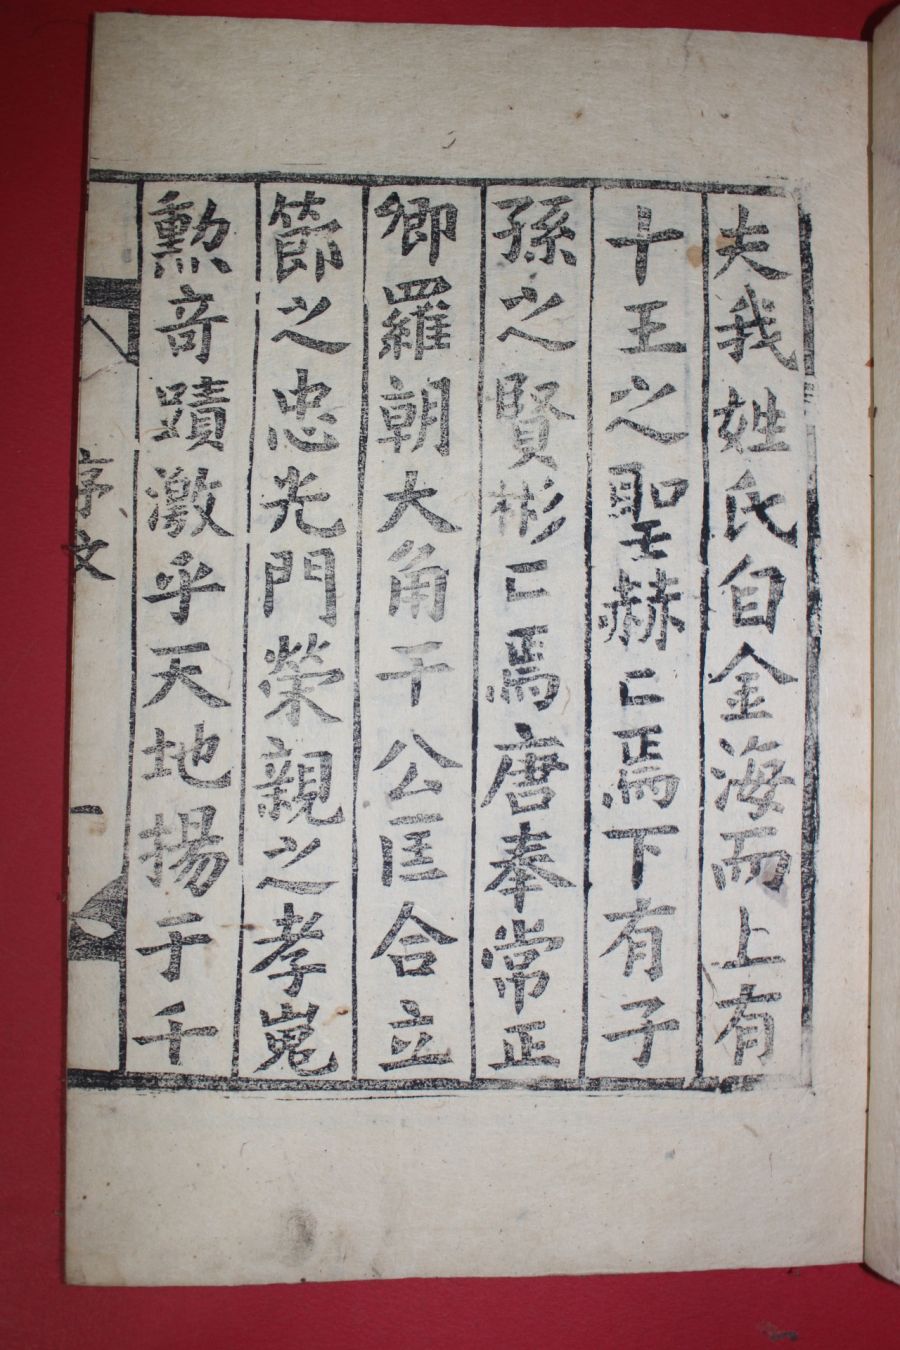 夫我姓氏自金海而上有
十王之聖赫〻焉下有子
孫之賢彬〻焉唐奉常正
卿羅朝大角干公匡合立
節之忠光門榮親之孝嵬
勲奇蹟激乎天地揚于千
序文
一